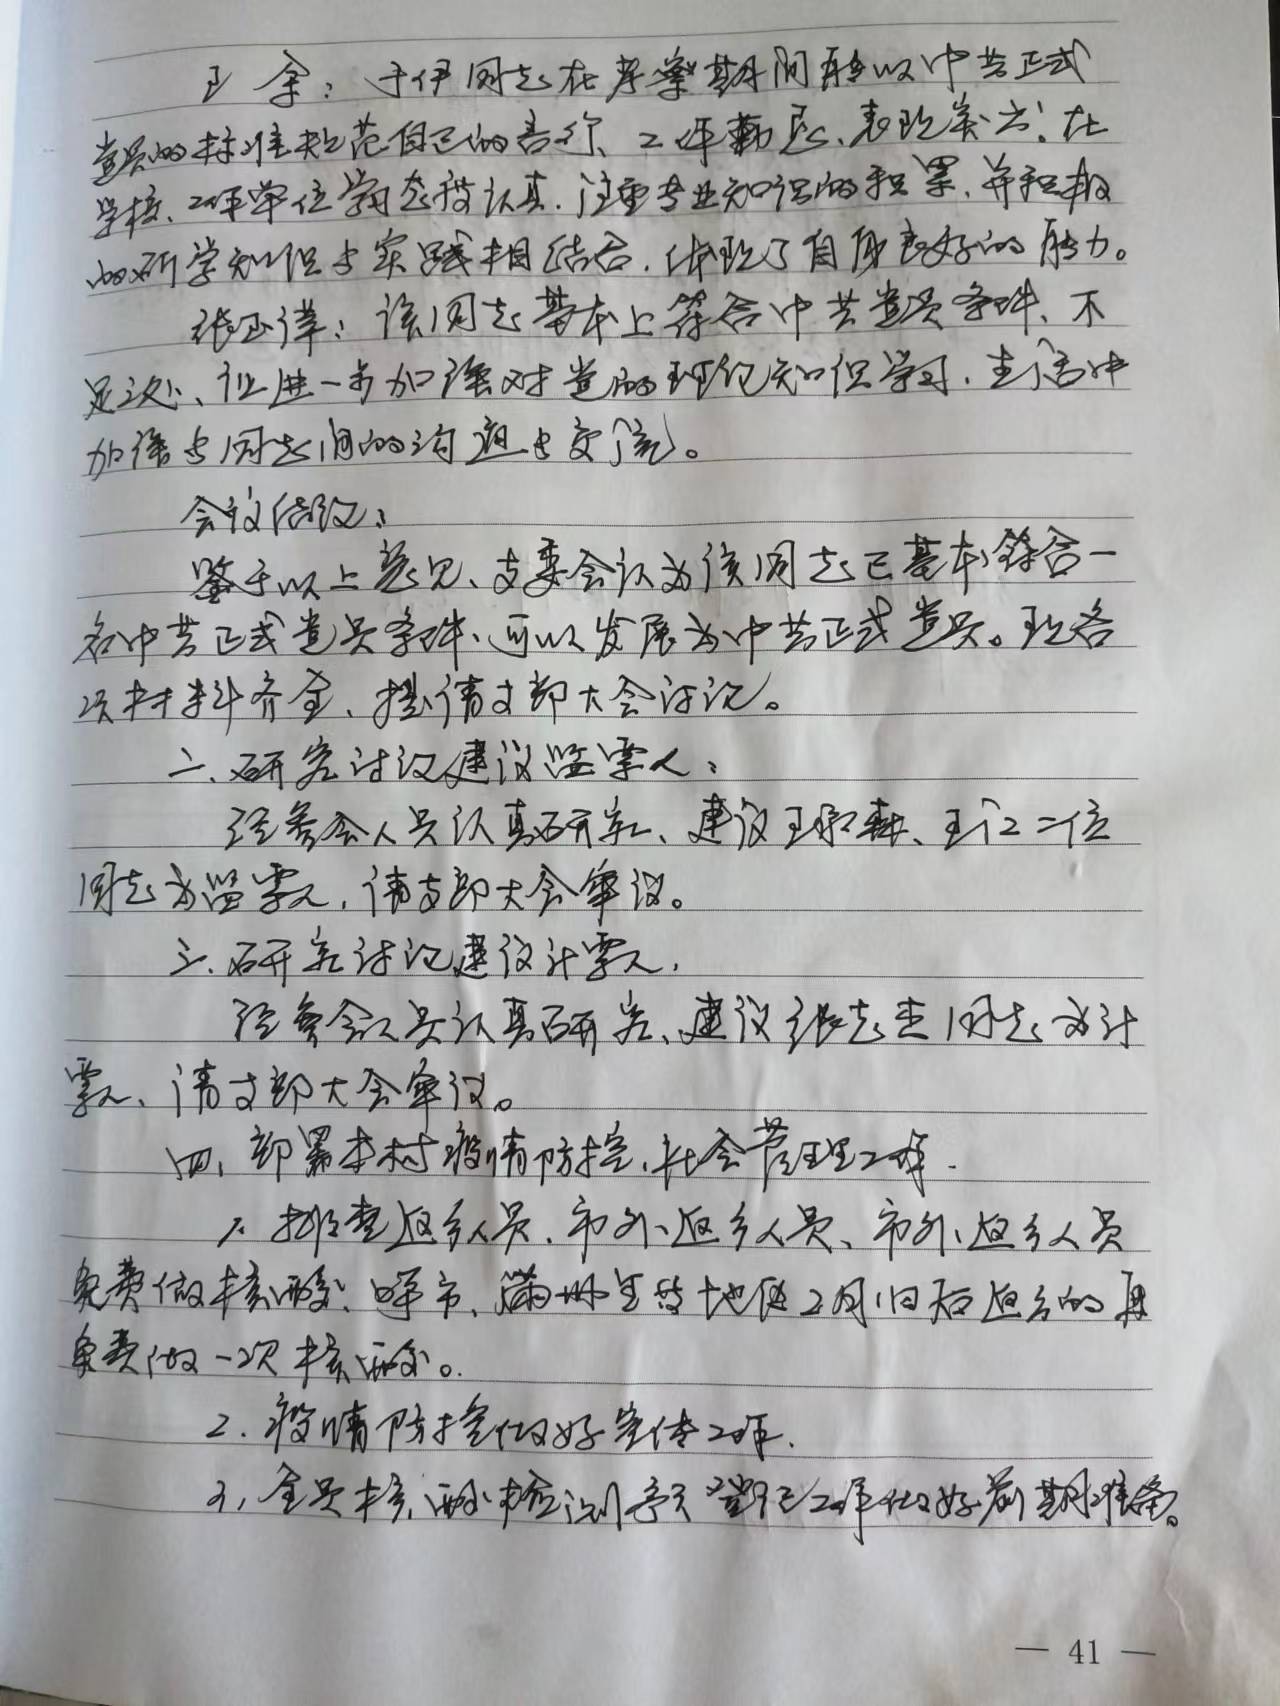 王全：于伊同志在考察期间能以中共正式
党员的标准规范自己的言行、工作勤恳、表现突出；在
学校、工作单位学习态度认真，注重专业知识的积累，并积极
的研学知识与实践相结合，体现了自身良好的能力。
张玉洋：该同志基本上符合中共党员条件、不
足之处、应进一步加强对党的理论知识学习，生活中
加强与同志间的沟通与交流。
会议结论：
鉴于以上意见、支委会认为该同志已基本符合一
名中共正式党员条件、可以发展为中共正式党员。现各
项材料齐全、提请支部大会讨论。
二、研究讨论建议监票人：
经参会人员认真研究、建议王、王江二位
同志为监票人，请支部大会审议。
三、研究讨论建议计票人，
经参会人员认真研究、建议张志杰同志为计
票人、请支部大会审议。
四、部署本村疫情防控，社会管理工作.
1、排查返乡人员，市外返乡人员、市外返乡人员
免费做核酸、市、满洲里等地区2月1日后返乡的再
免费做一次核酸。
2．疫情防控做好宣传工作．
3，全员核酸检测登记工作做好前期准备。
— 41 —